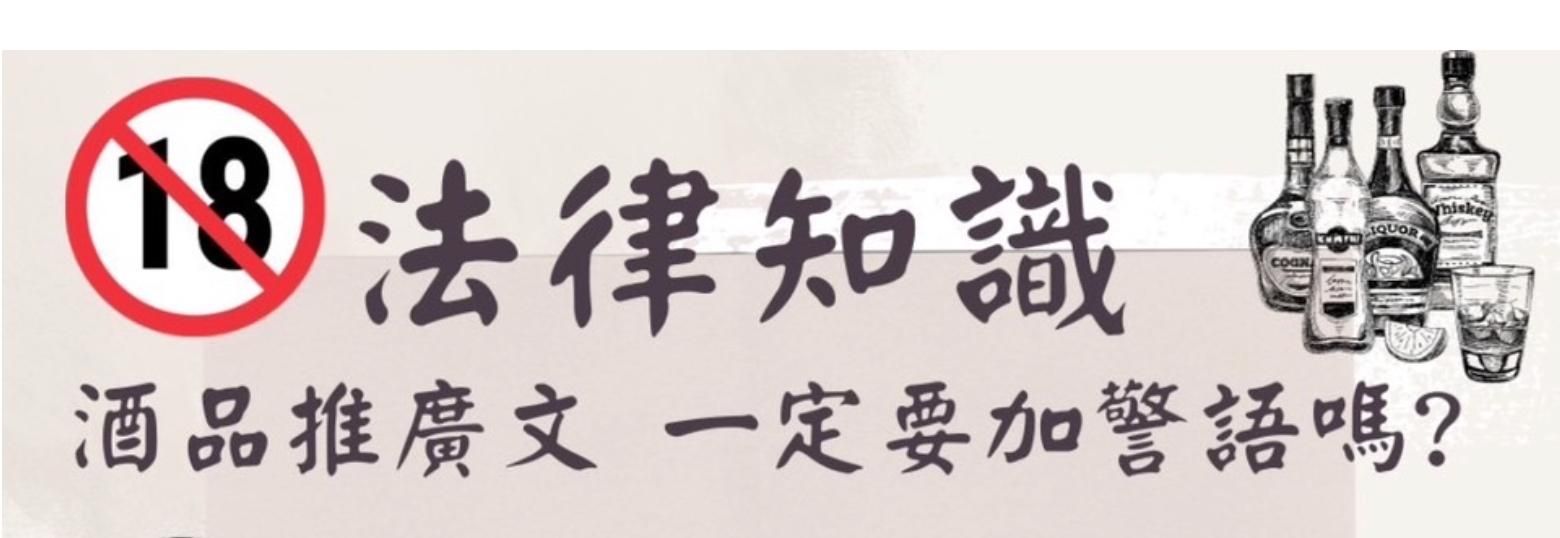 18
法律知識
酒品推廣文 一定要加警語嗎?
Whiskey
LIQUOR